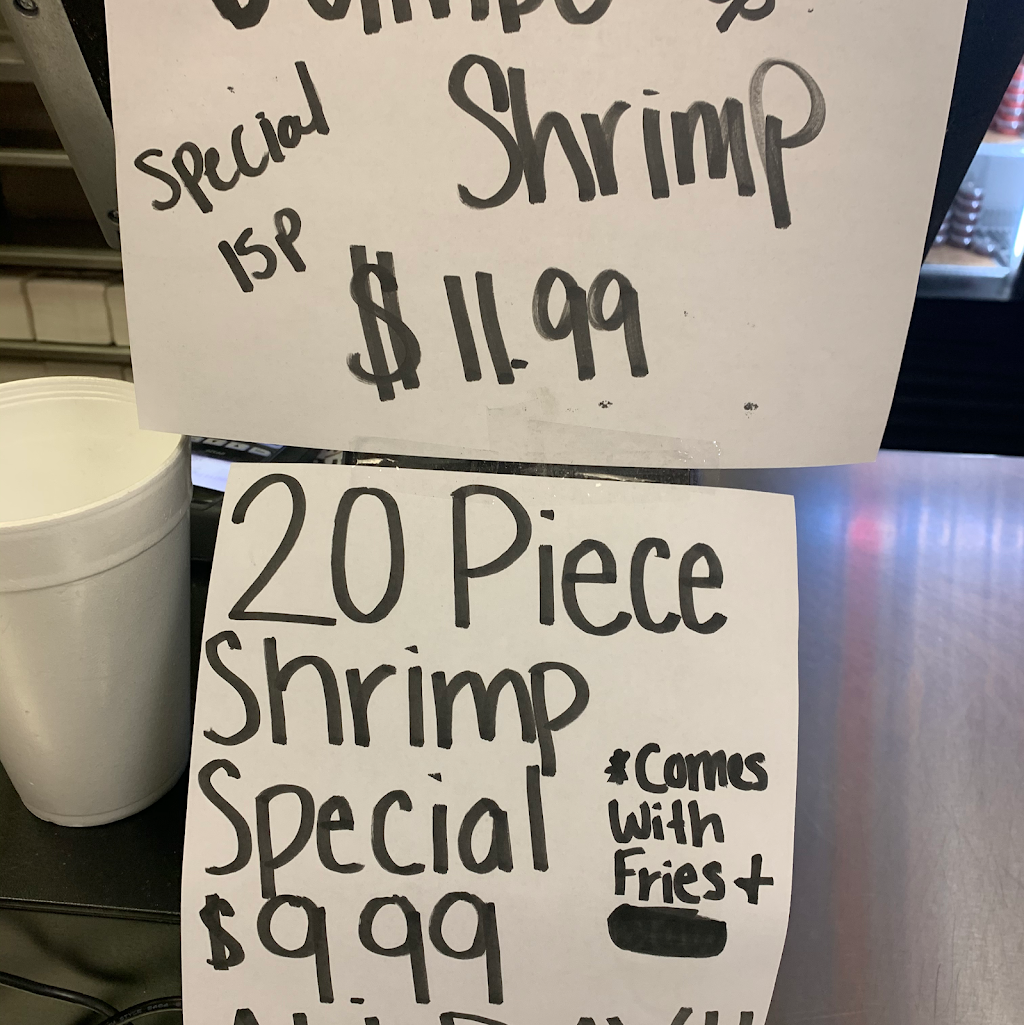 Shrimp
Special
15P
$11.99
20 Piece
Shrimp
Special
$9.99
*Comes
With
Fries +